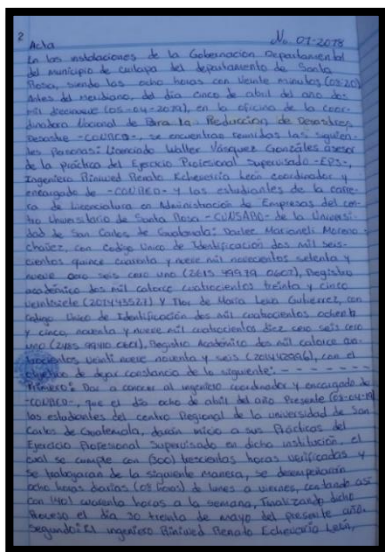 2
Acta No. 07-2019
En las instalaciones de la Gobernación Departamental
del municipio de Cuilapa del departamento de Santa
Rosa, siendo las ocho horas con veinte minutos (08:20)
Antes del meridiano, del día cinco de abril del año dos
mil diecinueve (05-04-2019), en la oficina de la coor-
dinadora Nacional de Para la Reducción de Desastres
Desastre -CONRED-, se encuentran reunidas las siguien-
tes personas: Licenciado Walter Vásquez Gonzáles asesor
de la práctica del Ejercicio Profesional Supervisado -EPS-,
Ingeniero Biniwed Renato Echeverría León coordinador y
encargado de -CONRED- y las estudiantes de la carre-
ra de Licenciatura en Administración de Empresas del cen-
tro Universitario de Santa Rosa -CUNSARO- de la Universi-
dad de San Carlos de Guatemala: Marioneli Moreno
Chávez, con Código Único de Identificación dos mil seis-
cientos quince cuarenta y nueve mil novecientos setenta y
nueve cero seis cero uno (2615 49979 0601), Registro
académico dos mil catorce cuatrocientos treinta y cinco
veintisiete (201443527) y Flor de María Leiva Gutierrez, con
código Único de Identificación dos mil cuatrocientos ochenta
y cinco, noventa y nueve mil cuatrocientos diez cero seis cero
uno (2485 99410 0601), Registro Académico dos mil catorce cua-
trocientos veinti nueve noventa y seis (201442996), con el
objetivo de dejar constancia de lo siguiente: - - - - - -
Primero: Dar a conocer al ingeniero coordinador y encargado de
-CONRED-, que el día ocho de abril del año Presente (08-04-19)
las estudiantes del centro Regional de la universidad de San
Carlos de Guatemala, darán inicio a sus Prácticas del
Ejercicio Profesional Supervisado en dicha institución, el
cual se cumple con (300) trescientas horas verificadas y
se trabajaran de la siguiente manera, se desempeñarán
ocho horas diarias de lunes a viernes, contando así
con (40) cuarenta horas a la semana, finalizando dicho
Proceso el día 30 treinta de mayo del presente año.
Segundo: El ingeniero Biniwed Renato Echeverría León,